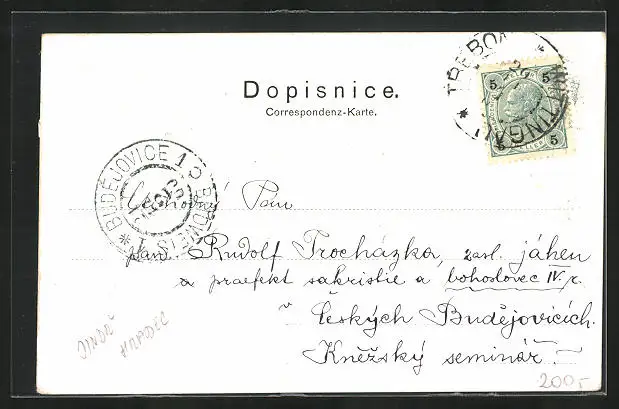 Dopisnice.
Correspondenz-Karte.
TŘEBOŇ
WITTINGAU
5 5
5 5
BUDĚJOVICE 1
BUDWEIS 1
Ctihodný Pan
pan Rudolf Procházka, zasl. jáhen
a praefekt sakristie a bohoslovec IV. r.
v
Českých Budějovicích.
Kněžský seminář.
JINDŘ
HRADEC
200,-